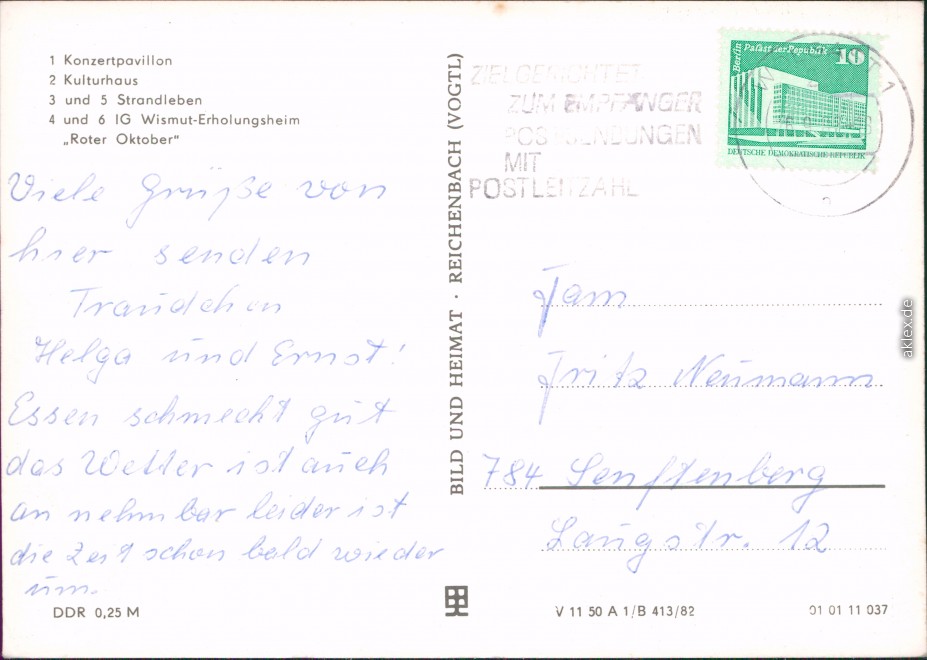 1 Konzertpavillon
2 Kulturhaus
3 und 5 Strandleben
4 und 6 IG Wismut-Erholungsheim
„Roter Oktober“
Viele Grüße von
hier senden
Traudchen
Helga und Ernst!
Essen schmeckt gut
das Wetter ist auch
an nehmbar leider ist
die Zeit schon bald wieder
um.
DDR 0,25 M
BILD UND HEIMAT · REICHENBACH (VOGTL)
ZIELGERICHTET
ZUM EMPFÄNGER
POSTSENDUNGEN
MIT
POSTLEITZAHL
Berlin Palast der Republik 10
DEUTSCHE DEMOKRATISCHE REPUBLIK
Fam
Fritz Neumann
784 Senftenberg
Langstr. 12
V 11 50 A 1/B 413/82
01 01 11 037
aklex.de